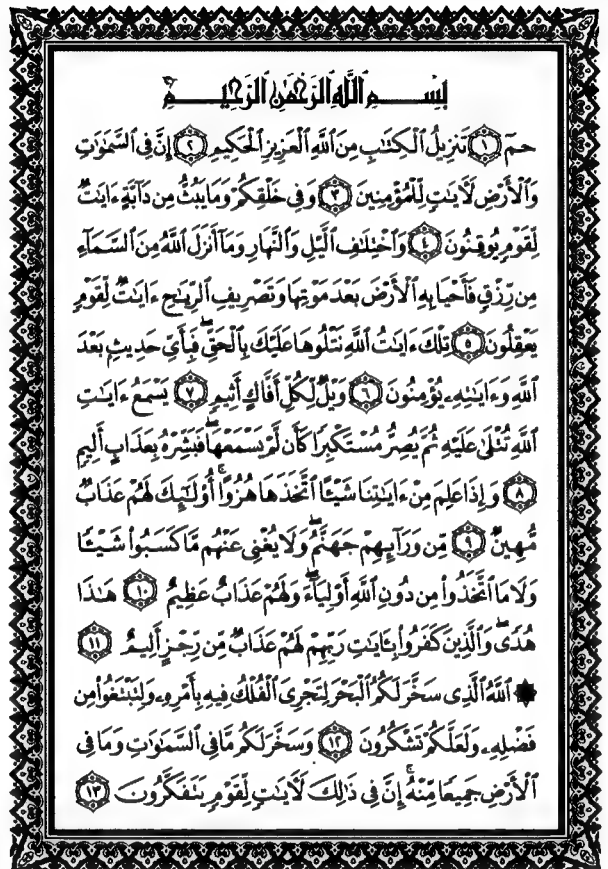 بِسْمِ ٱللَّهِ ٱلرَّحْمَٰنِ ٱلرَّحِيمِ
حمٓ ١ تَنزِيلُ ٱلْكِتَٰبِ مِنَ ٱللَّهِ ٱلْعَزِيزِ ٱلْحَكِيمِ ٢ إِنَّ فِى ٱلسَّمَٰوَٰتِ
وَٱلْأَرْضِ لَـَٔايَٰتٍ لِّلْمُؤْمِنِينَ ٣ وَفِى خَلْقِكُمْ وَمَا يَبُثُّ مِن دَآبَّةٍ ءَايَٰتٌ
لِّقَوْمٍ يُوقِنُونَ ٤ وَٱخْتِلَٰفِ ٱلَّيْلِ وَٱلنَّهَارِ وَمَآ أَنزَلَ ٱللَّهُ مِنَ ٱلسَّمَآءِ
مِن رِّزْقٍ فَأَحْيَا بِهِ ٱلْأَرْضَ بَعْدَ مَوْتِهَا وَتَصْرِيفِ ٱلرِّيَٰحِ ءَايَٰتٌ لِّقَوْمٍ
يَعْقِلُونَ ٥ تِلْكَ ءَايَٰتُ ٱللَّهِ نَتْلُوهَا عَلَيْكَ بِٱلْحَقِّ ۖ فَبِأَىِّ حَدِيثٍۭ بَعْدَ
ٱللَّهِ وَءَايَٰتِهِۦ يُؤْمِنُونَ ٦ وَيْلٌ لِّكُلِّ أَفَّاكٍ أَثِيمٍ ٧ يَسْمَعُ ءَايَٰتِ
ٱللَّهِ تُتْلَىٰ عَلَيْهِ ثُمَّ يُصِرُّ مُسْتَكْبِرًا كَأَن لَّمْ يَسْمَعْهَا ۖ فَبَشِّرْهُ بِعَذَابٍ أَلِيمٍ
٨ وَإِذَا عَلِمَ مِنْ ءَايَٰتِنَا شَيْـًٔا ٱتَّخَذَهَا هُزُوًا ۚ أُو۟لَٰٓئِكَ لَهُمْ عَذَابٌ
مُّهِينٌ ٩ مِّن وَرَآئِهِمْ جَهَنَّمُ ۖ وَلَا يُغْنِى عَنْهُم مَّا كَسَبُوا۟ شَيْـًٔا
وَلَا مَا ٱتَّخَذُوا۟ مِن دُونِ ٱللَّهِ أَوْلِيَآءَ ۖ وَلَهُمْ عَذَابٌ عَظِيمٌ ١٠ هَٰذَا
هُدًى ۖ وَٱلَّذِينَ كَفَرُوا۟ بِـَٔايَٰتِ رَبِّهِمْ لَهُمْ عَذَابٌ مِّن رِّجْزٍ أَلِيمٌ ١١
۞ ٱللَّهُ ٱلَّذِى سَخَّرَ لَكُمُ ٱلْبَحْرَ لِتَجْرِىَ ٱلْفُلْكُ فِيهِ بِأَمْرِهِۦ وَلِتَبْتَغُوا۟ مِن
فَضْلِهِۦ وَلَعَلَّكُمْ تَشْكُرُونَ ١٢ وَسَخَّرَ لَكُم مَّا فِى ٱلسَّمَٰوَٰتِ وَمَا فِى
ٱلْأَرْضِ جَمِيعًا مِّنْهُ ۚ إِنَّ فِى ذَٰلِكَ لَـَٔايَٰتٍ لِّقَوْمٍ يَتَفَكَّرُونَ ١٣